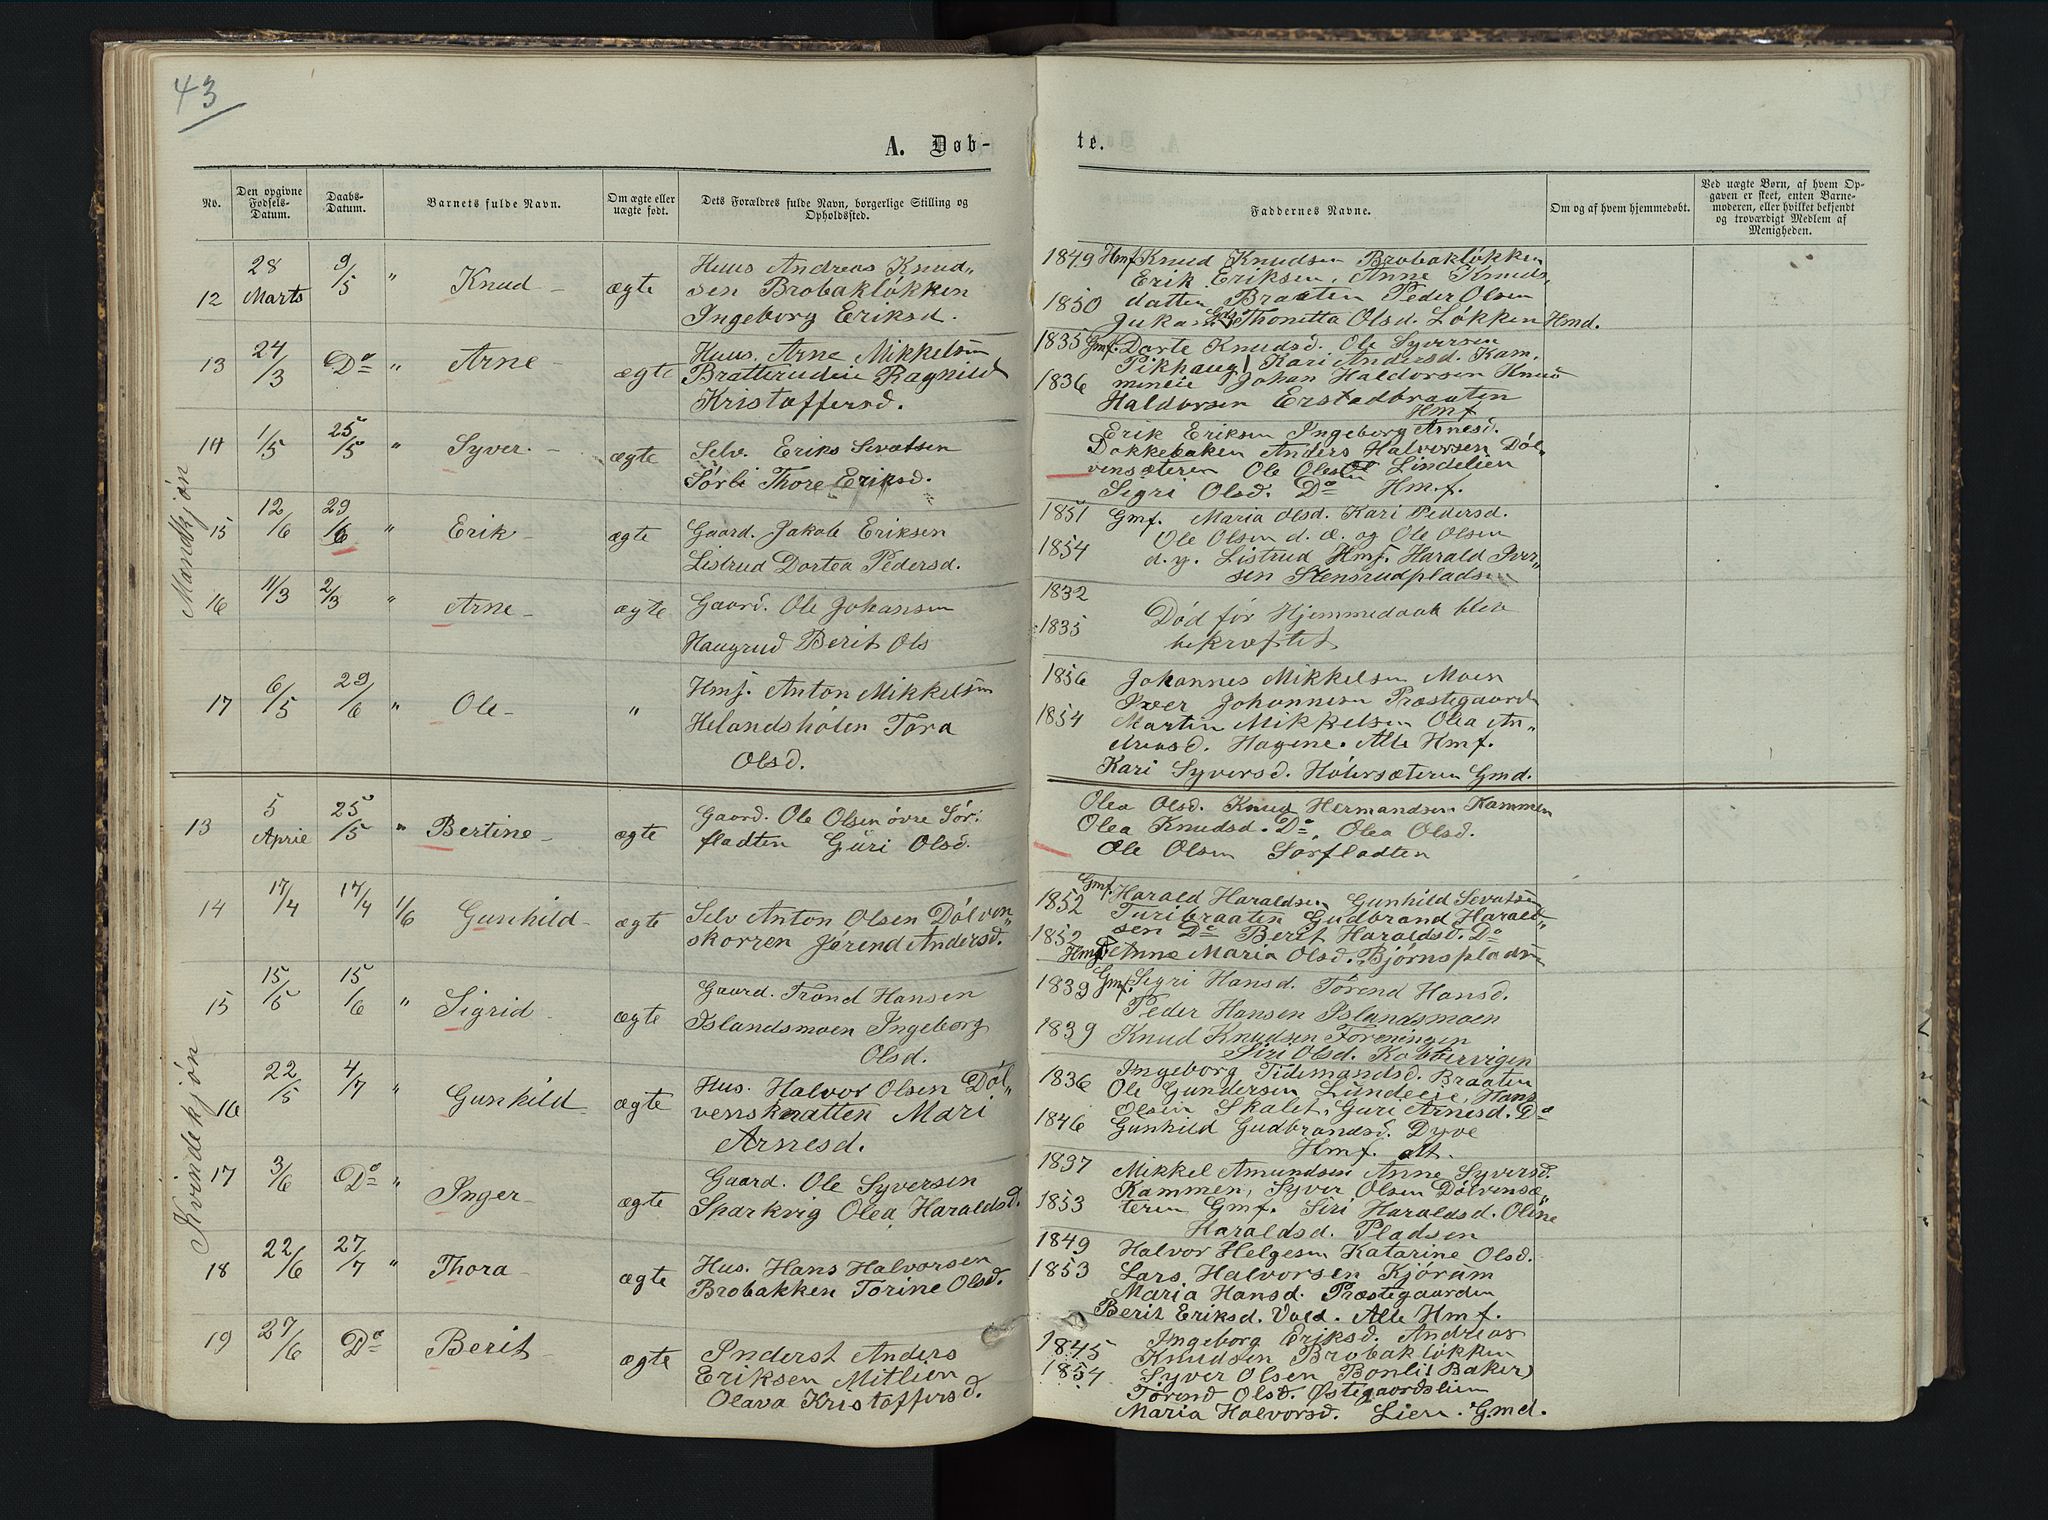 43
A. Døb-
te.
No.
Den opgivne Fødsels-Datum.
Daabs-Datum.
Barnets fulde Navn.
Om ægte eller uægte født.
Dets Forældres fulde Navn, borgerlige Stilling og Opholdssted.
Faddernes Navne.
Om og af hvem hjemmedøbt.
Ved uægte Børn, af hvem Op-
gaven er skeet, enten Barne-
moderen, eller hvilket bekjendt
og troværdigt Medlem af
Menigheden.
Mandkjøn
12 28 Marts 9/5 " Knud - ægte
Huus Andreas Knud„
sen Brobakløkken
Ingeborg Eriksd.
1849 Hmf Knud Knudsen Brobakløkken
Erik Eriksen, Anne Knuds
1850 datten Braaten Peder Olsen
Thonetta Olsd. Løkken Hmd.
13 24/3 Do " Arne - ægte
Huus. Arne Mikkelsen
Bratterudeie Ragnild
Kristoffersd.
1835 Gmf. Dorte Knudsd. Ole Syversen
Pikhaug Kari Andersd. Kam
1836 meneie Johan Haldorsen Knud
Haldorsen Erstadbraaten
Hmf
14 1/5 25/5 " Syver - ægte
Selv. Eriks Sevatsen
Sørli Thore Eriksd.
Erik Eriksen Ingeborg Arnesd.
Dokkebaken Anders Halvorsen Døl„
vensæteren Ole Olesen Lindelien
Sigri Olsd. Do Hmf.
15 12/6 29/6 " Erik - ægte
Gaard. Jakob Eriksen
Listrud Dortea Pedersd.
1851 Gmf. Maria Olsd. Kari Pedersd.
Ole Olsen d. æ. og Ole Olsen
1854 d. y. Listrud Hmf. Harald Iver„
sen Stensrudpladsen
16 11/3 2/3 " Arne - ægte
Gaard. Ole Johansen
Haugrud Berit Ols
1832
1835 Død før Hjemmedaab blev
bekræftet
17 6/5 29/6 " Ole - "
Hmf. Anton Mikkelsen
Helandshølen Tora
Olsd.
1856 Johannes Mikkelsen Moen
Iver Johannesen Præstegaarden
1854 Martin Mikkelsen Olea An„
dreasd. Hagene. Alle Hmf.
Kari Syversd. Høversæteren Gmd.
Kvindekjøn
13 5 April 25/5 " Bertine - ægte
Gaard. Ole Olsen øvre Sør:
fladten Guri Olsd.
Olea Olsd. Knud Hermandsen Kammen
Olea Knudsd. Do, Olea Olsd.
Ole Olsen Sørfladten
14 17/4 17/4 1/6 Gunhild - ægte
Selv Anton Olsen Dølven„
skorren Jørend Andersd.
1852 Gmf. Harald Haraldsen Gunhild Sevatsen
Turibraaten Gudbrand Harald„
1852 sen Do Berit Haraldsd. Do
Hmf Anne Maria Olsd. Bjørnspladsen
15 15/5 15/6 " Sigrid - ægte
Gaard. Trond Hansen
Islandsmoen Ingeborg
Olsd.
1839 Gmf. Sigri Hansd. Tørend Hansd.
Peder Hansen Islandsmoen
1839 Knud Knudsen Foreningen
Siri Olsd. Kobbervigen
16 22/5 4/7 " Gunhild ægte
Hus. Halvor Olsen Døl„
vensknatten Mari
Arnesd.
1836 Ingeborg Tidemandsd. Braaten
Ole Gundersen Lundeeie, Hans
Olsen Skalet, Guri Arnesd. Do
1846 Gunhild Gudbrandsd. Dyve
Hmf. alt.
17 3/6 Do " Inger - ægte
Gaard. Ole Syversen
Sparkvig Olea Haraldsd.
1837 Mikkel Amundsen Anne Syversd.
Kammen, Syver Olsen Dølvensæ„
1853 teren Gmf. Siri Haraldsd. Oline
Haraldsd. Pladsen
18 22/6 27/7 " Thora - ægte
Hus. Hans Halvorsen
Brobakken Torine Olsd.
1849 Halvor Helgesen Katarine Olsd.
1853 Lars Halvorsen Kjørum
Maria Hansd. Præstegaarden
Berit Eriksd. Vold. Alle Hmf.
19 27/6 Do Berit - ægte
Inderst Anders
Eriksen Mitlien
Olava Kristoffersd.
1845 Ingeborg Eriksd. Andreas
Knudsen Brobakløkken
1854 Syver Olsen Bonli (Baker)
Tørend Olsd. Østegaardslien
Maria Halvorsd. Lien. Gmd.